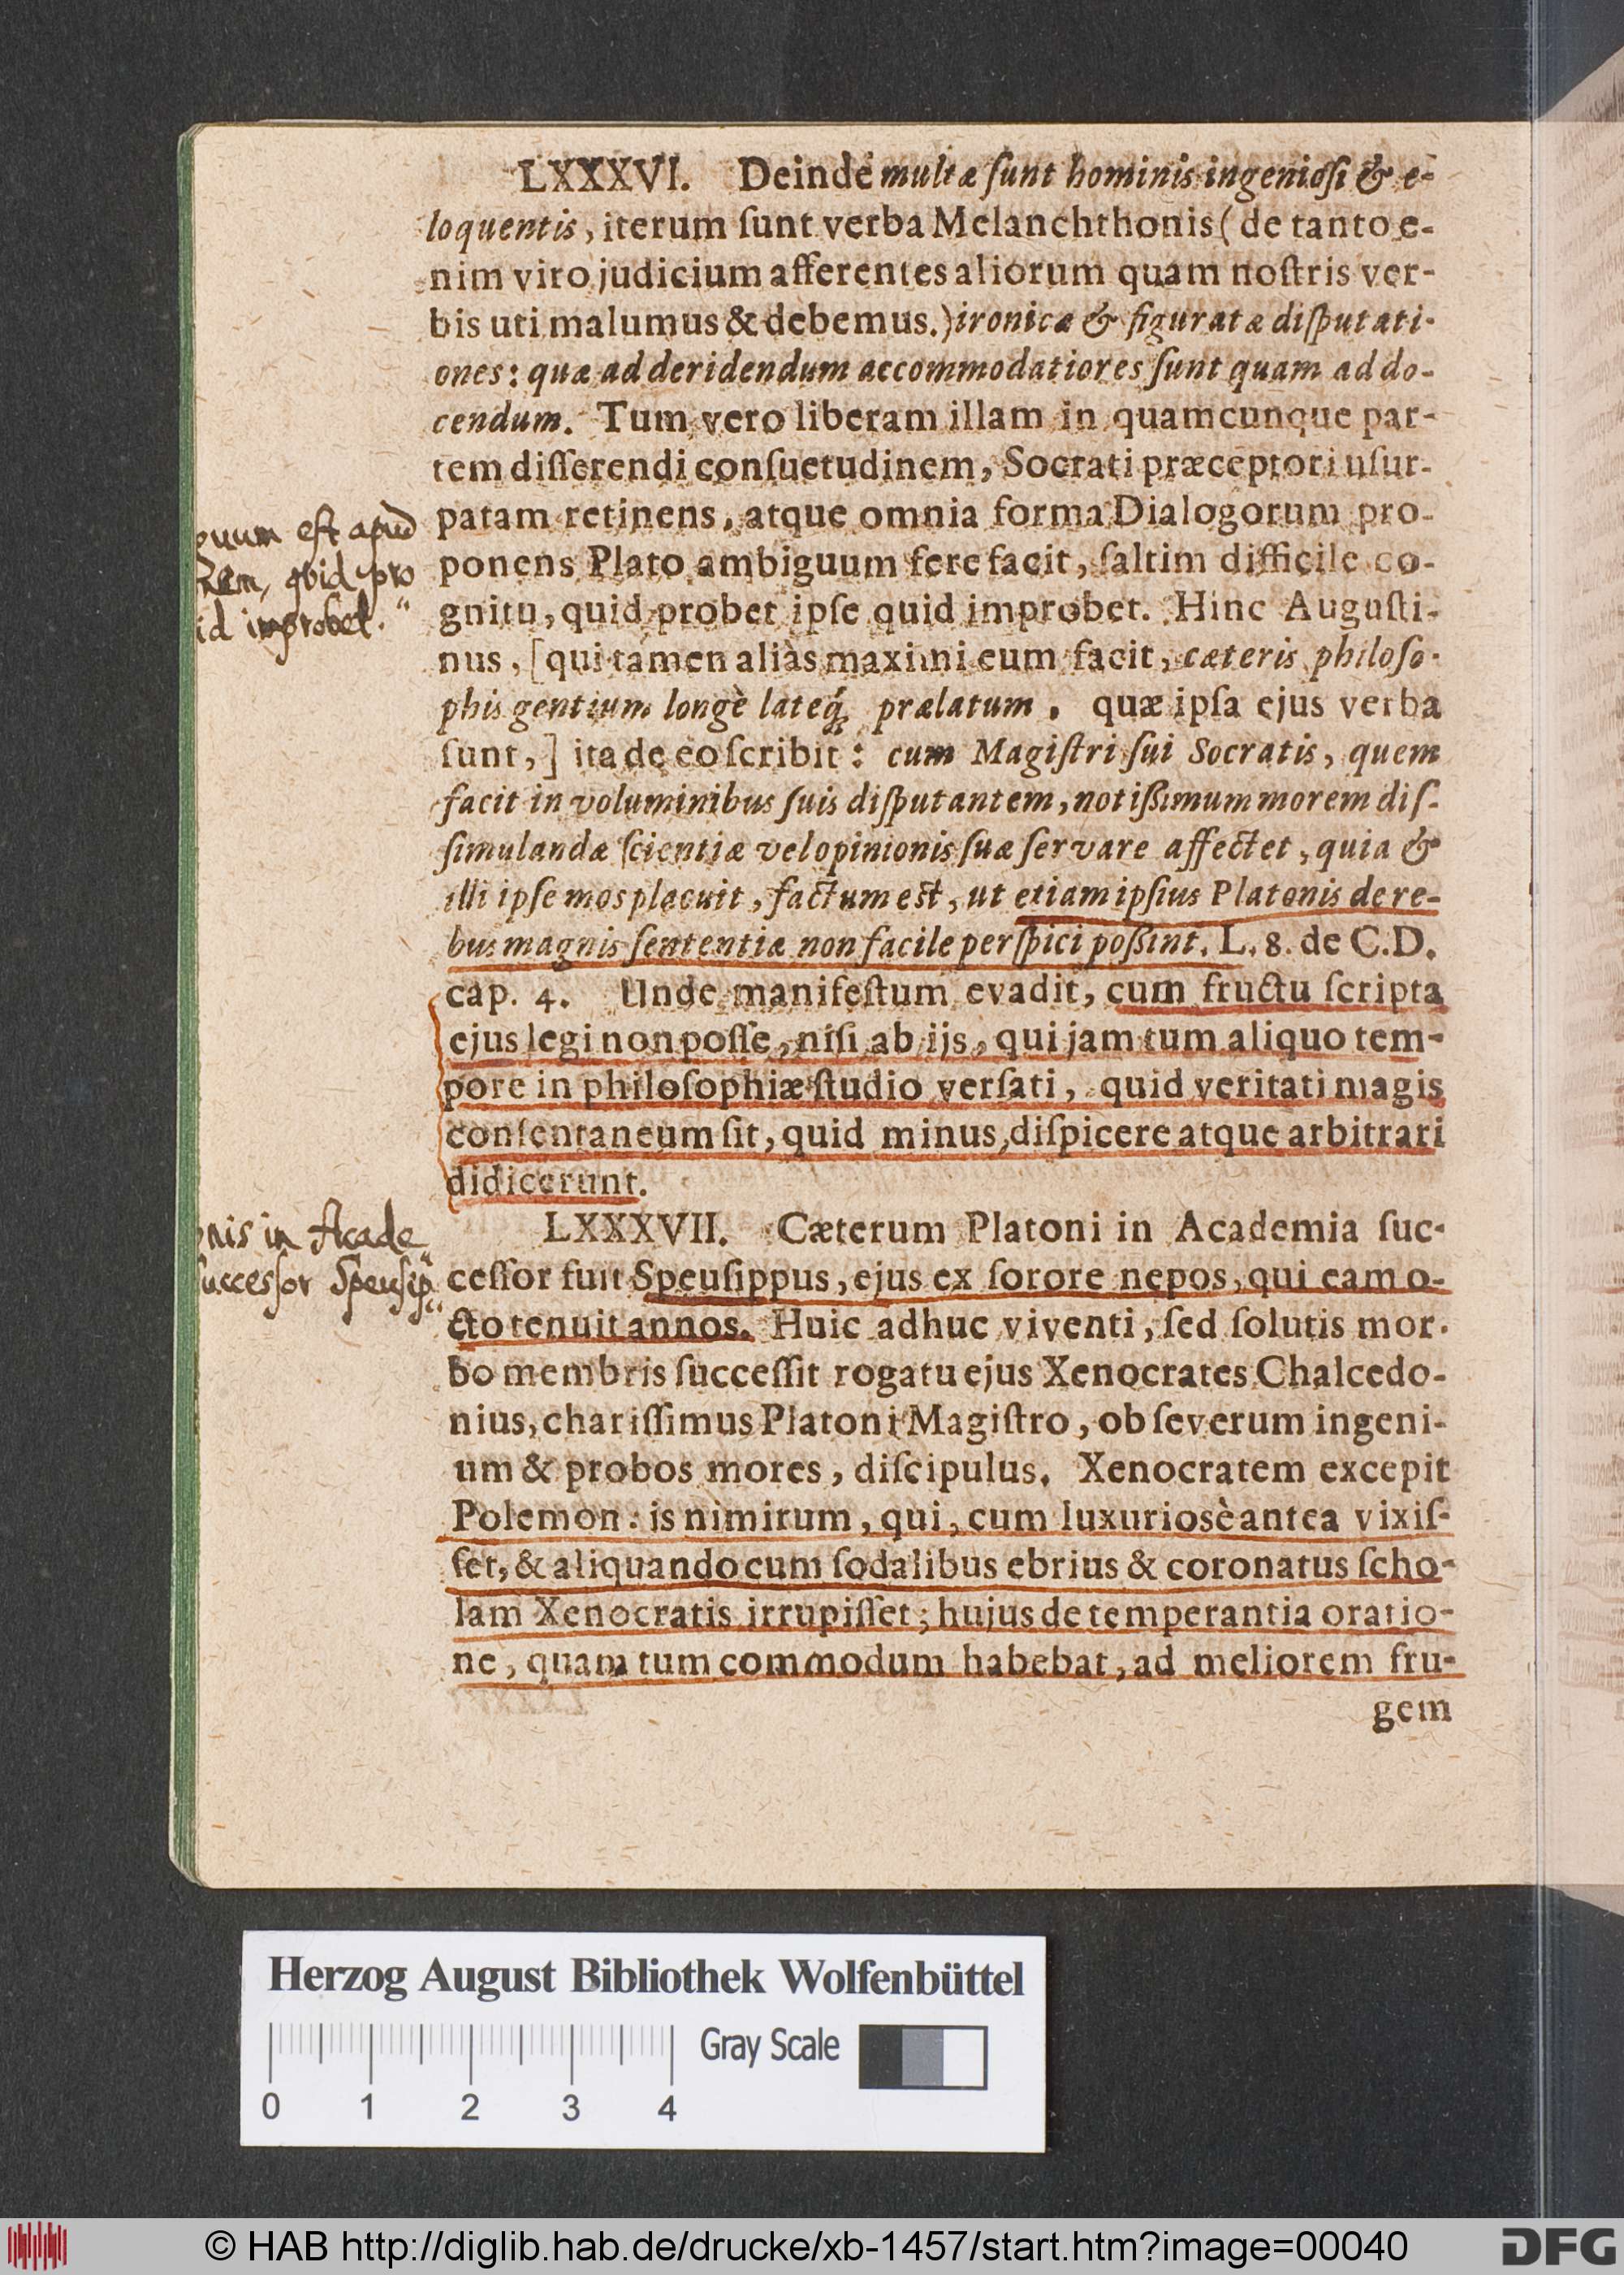 LXXXVI. Deinde multæ ſunt hominis ingenioſi & e-
loquentis, iterum ſunt verba Melanchthonis (de tanto e-
nim viro judicium afferentes aliorum quam noſtris ver-
bis uti malumus & debemus.) ironicæ & figuratæ diſputati-
ones: quæ ad deridendum accommodatiores ſunt quam ad do-
cendum. Tum vero liberam illam in quamcunque par-
tem diſſerendi conſuetudinem, Socrati præceptori uſur-
patam retinens, atque omnia forma Dialogorum pro-
ponens Plato ambiguum fere facit, ſaltim difficile co-
gnitu, quid probet ipſe quid improbet. Hinc Auguſti-
nus, [qui tamen aliàs maximi eum facit, cæteris philoſo-
phis gentium longè lateq́; prælatum, quæ ipſa ejus verba
ſunt,] ita de eo ſcribit: cum Magiſtri ſui Socratis, quem
facit in voluminibus ſuis diſputantem, notißimum morem diſ-
ſimulandæ ſcientiæ vel opinionis ſuæ ſervare affectet, quia &
illi ipſe mos placuit, factum eſt, ut etiam ipſius Platonis de re-
bus magnis ſententiæ non facile perſpici poßint. L. 8. de C.D.
cap. 4. Unde manifeſtum evadit, cum fructu ſcripta
ejus legi non poſſe, niſi ab ijs, qui jam tum aliquo tem-
pore in philoſophiæ ſtudio verſati, quid veritati magis
conſentaneum ſit, quid minus, diſpicere atque arbitrari
didicerunt.
LXXXVII. Cæterum Platoni in Academia ſuc-
ceſſor fuit Speuſippus, ejus ex ſorore nepos, qui eam o-
cto tenuit annos. Huic adhuc viventi, ſed ſolutis mor-
bo membris ſucceſſit rogatu ejus Xenocrates Chalcedo-
nius, chariſſimus Platoni Magiſtro, ob ſeverum ingeni-
um & probos mores, diſcipulus. Xenocratem excepit
Polemon: is nimirum, qui, cum luxuriosè antea vixiſ-
ſet, & aliquando cum ſodalibus ebrius & coronatus ſcho-
lam Xenocratis irrupiſſet; hujus de temperantia oratio-
ne, quam tum commodum habebat, ad meliorem fru-
gem
guum eſt apud
quid pro
id improbet.
nis in Acade
ucceſſor Speuſip
Herzog August Bibliothek Wolfenbüttel
Gray Scale
0 1 2 3 4
© HAB http://diglib.hab.de/drucke/xb-1457/start.htm?image=00040
DFG